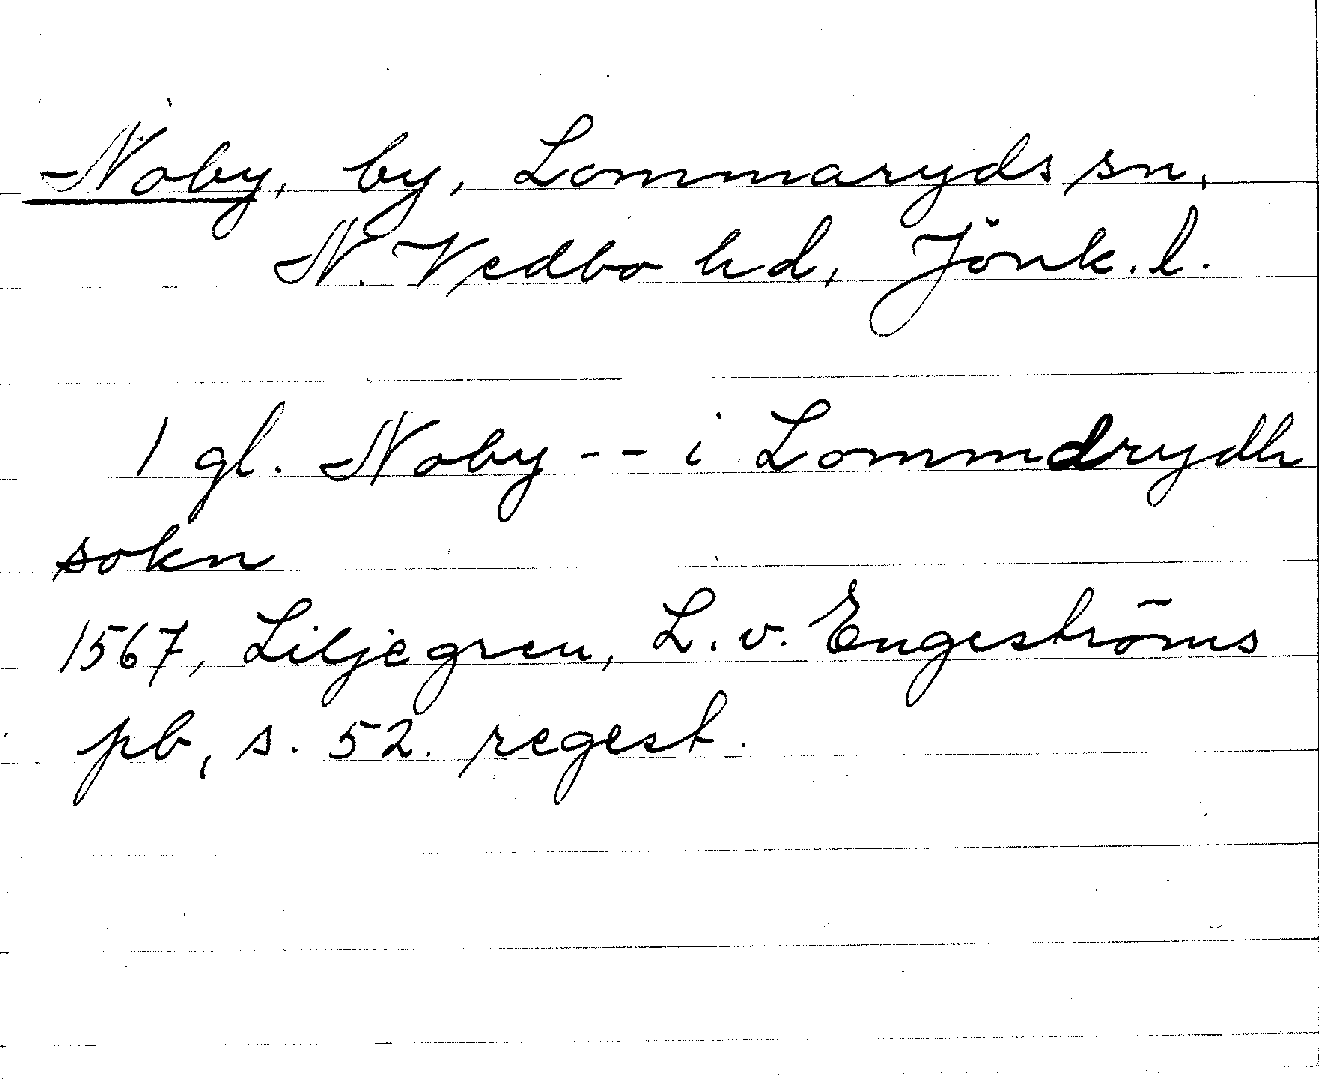 Noby, by, Lommaryds sn,
N. Vedbo hd, Jönk. l.
1 gl. Noby -- i Lommdrydh
sokn
1567, Liljegren, L. v. Engeströms
pb, s. 52. regest.